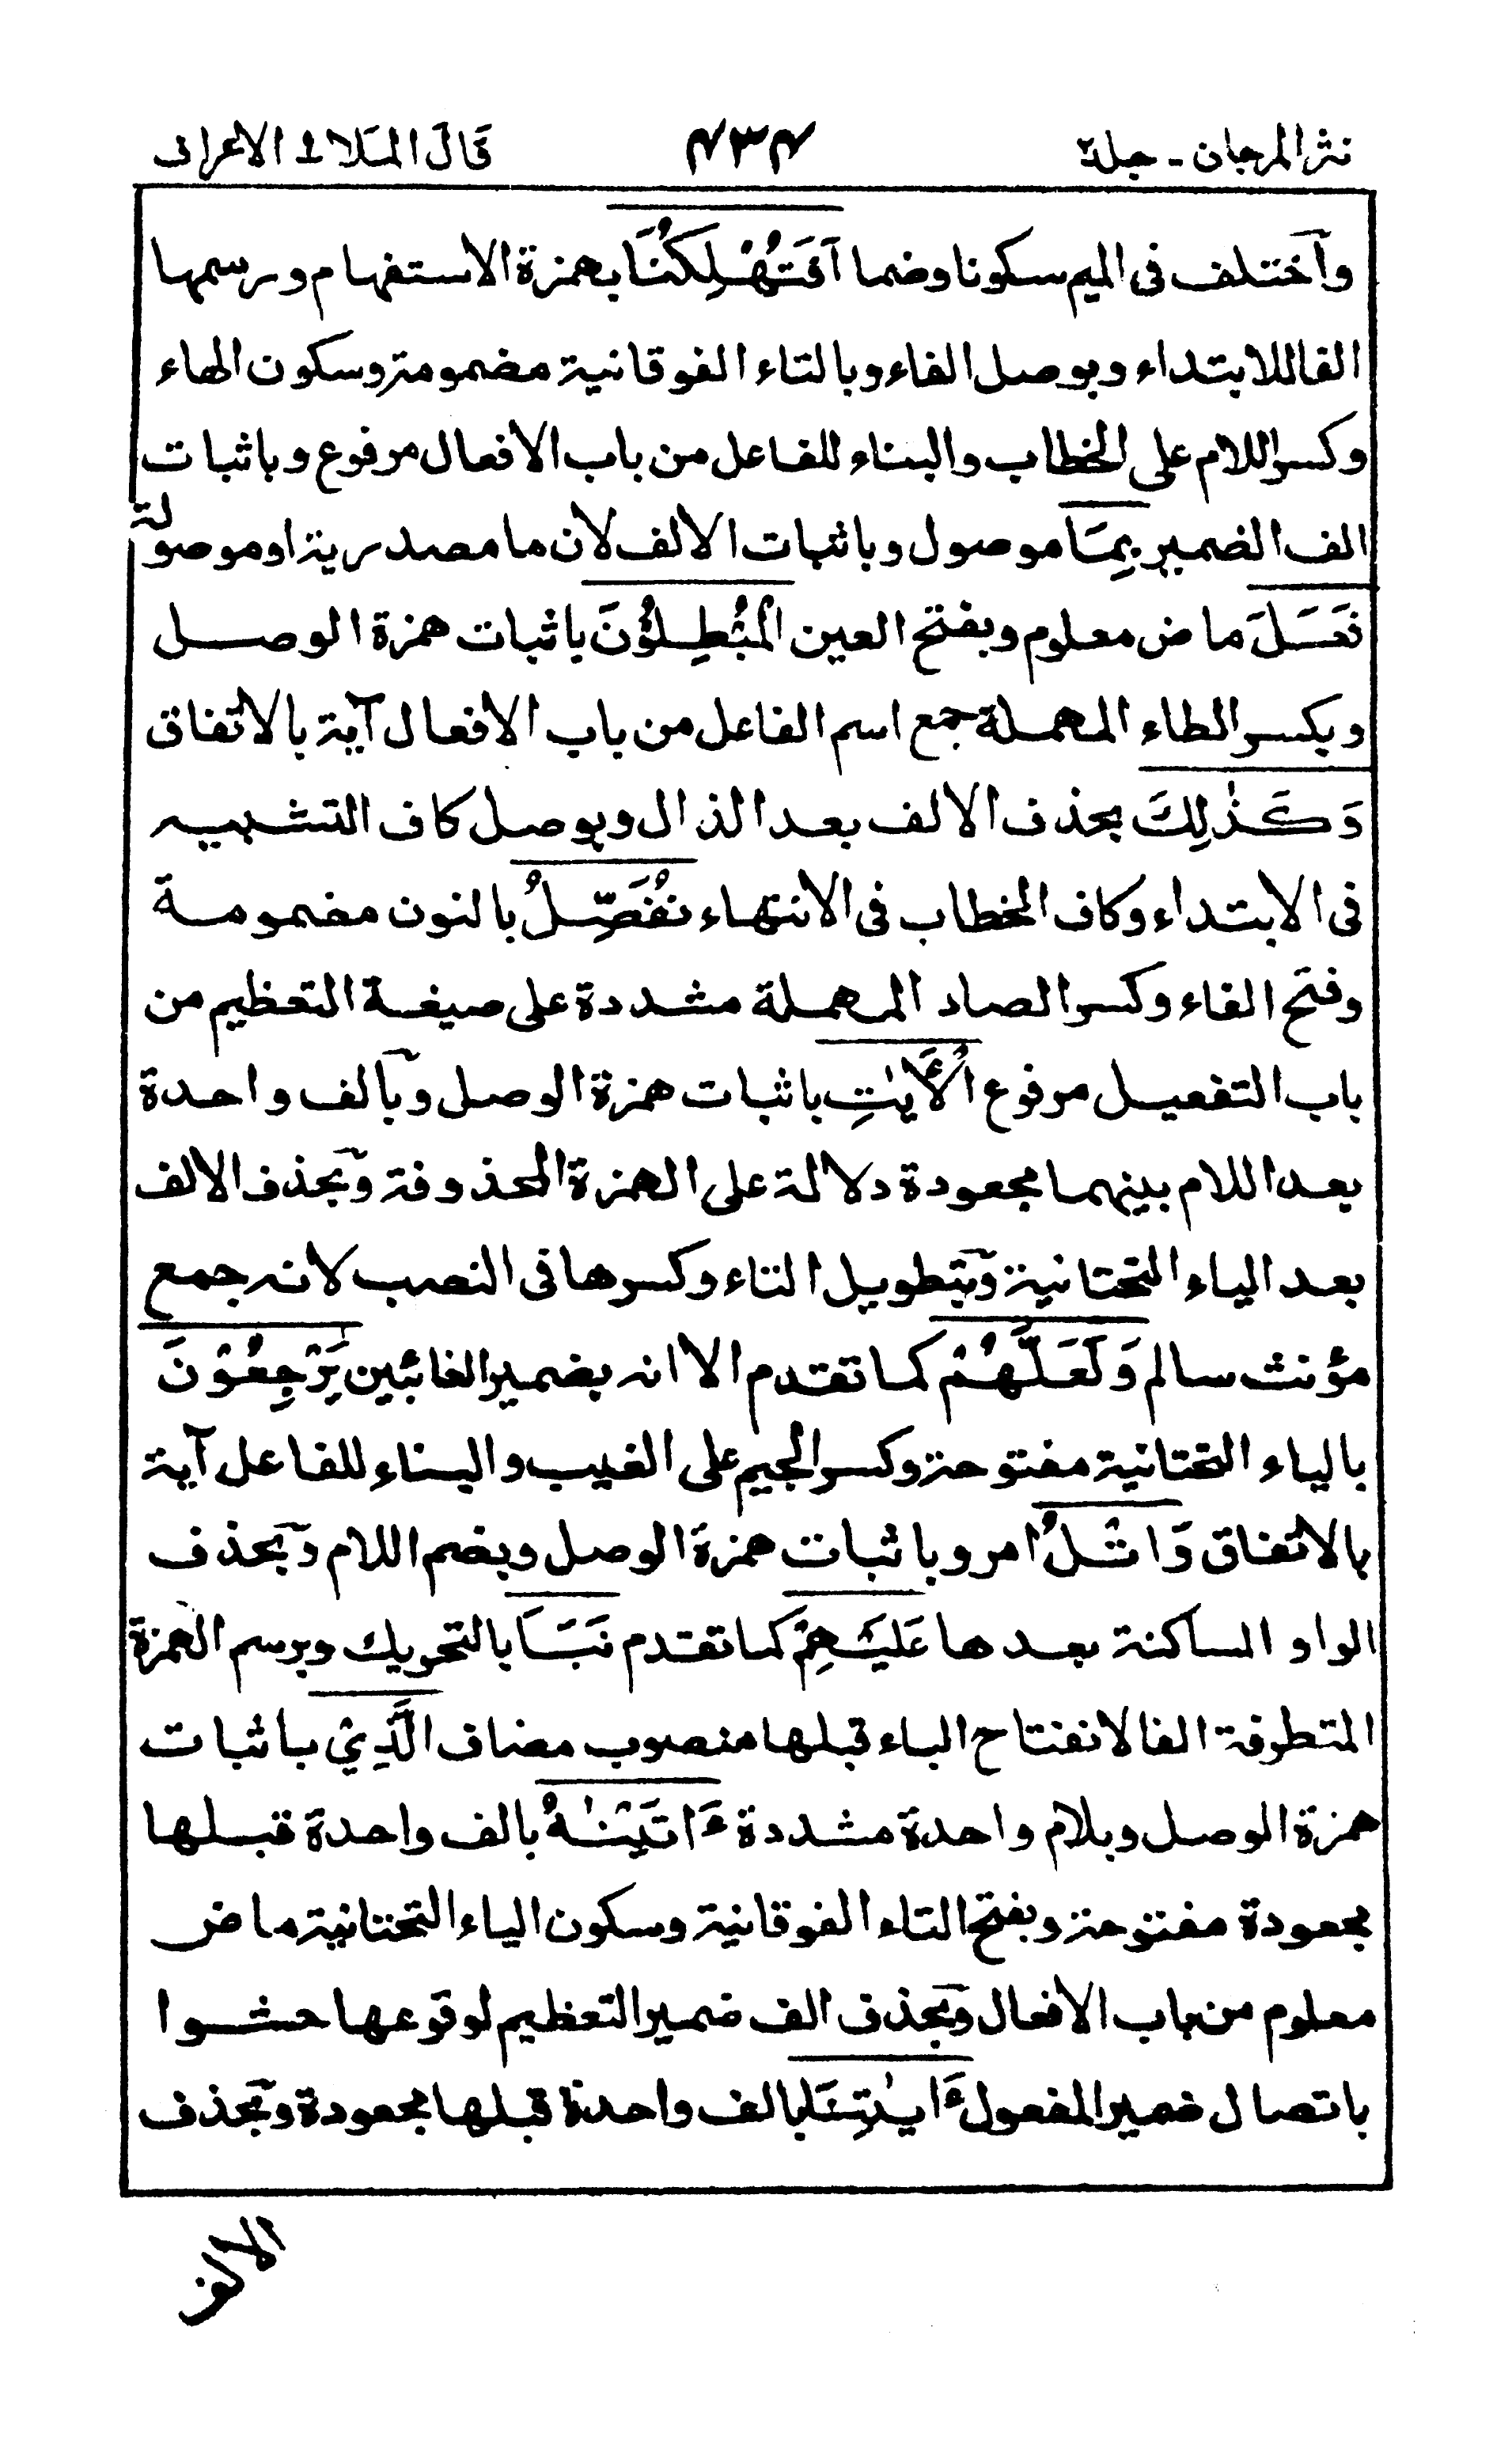 نثر المرجان - جلد٢ ٤٣٤ قال الملا ٩ الاعراف
وآختلف فى الميم سكونا وضما اَفَتُهْلِكُنَا بهمزة الاستفهام ورسمها
الفا للابتداء وبوصل الفاء وبالتاء الفوقانية مضمومة وسكون الهاء
وكسر اللام على الخطاب والبناء للفاعل من باب الافعال مرفوع وباثبات
الف الضمير بِمَا موصول وباثبات الالف لان ما مصدرية او موصولة
فَعَلَ ماض معلوم وبفتح العين الْمُبْطِلُوْنَ باثبات همزة الوصل
وبكسر الطاء المهملة جمع اسم الفاعل من باب الافعال آية بالاتفاق
وَكَذٰلِكَ بحذف الالف بعد الذال وبوصل كاف التشبيه
فى الابتداء وكاف الخطاب فى الانتهاء نُفَصِّلُ بالنون مضمومة
وفتح الفاء وكسر الصاد المهملة مشددة على صيغة التعظيم من
باب التفعيل مرفوع الْأٰيٰتِ باثبات همزة الوصل وبآلف واحدة
بعد اللام بينهما مجعودة دلالة على الهمزة المحذوفة وبحذف الالف
بعد الياء التحتانية وبتطويل التاء وكسرها فى النصب لانه جمع
مؤنث سالم وَلَعَلَّهُمْ كما تقدم الا انه بضمير الغائبين يَرْجِعُوْنَ
بالياء التحتانية مفتوحة وكسر الجيم على الغيب والبناء للفاعل آية
بالاتفاق وَاتْلُ امر وباثبات همزة الوصل وبضم اللام وبحذف
الواو الساكنة بعدها عَلَيْهِمْ كما تقدم نَبَاَ بالتحريك وبرسم الهمزة
المتطرفة الفا لانفتاح الباء قبلها منصوب مضاف الَّذِيْ باثبات
همزة الوصل وبلام واحدة مشددة ءَاتَيْنٰهُ بالف واحدة قبلها
مجعودة مفتوحة وبفتح التاء الفوقانية وسكون الياء التحتانية ماض
معلوم من باب الافعال وبحذف الف ضمير التعظيم لوقوعها حشوا
باتصال ضمير المفعول ءَايٰتِنَا بالف واحدة قبلها مجعودة وبحذف
الالف